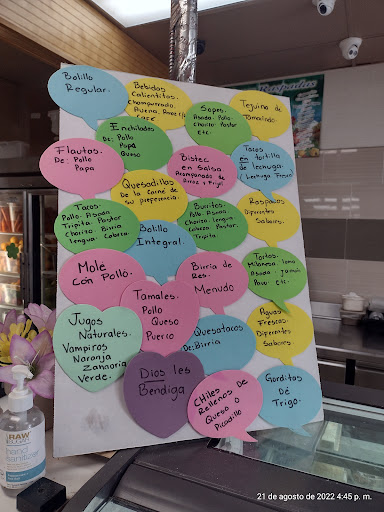 Bolillo
Regular.
Bebidas
Calientitos.
Champurrado
Avena. Arroz c/l
Café
Sopes.
Asada. Pollo
Chorizo Pastor
etc.
Tejuino de
Tamarindo.
Enchiladas
De: Pollo
Papa
Queso
Flautas.
De: Pollo
Papa
Bistec
en Salsa.
Acompañado de
Arroz y Frijol
Tacos
en tortilla
de lechuga.
Quesadillas
De la Carne de
su preferencia.
Tacos.
Pollo. Asada
Tripita Pastor
Chorizo. Birria
Lengua. Cabeza.
Burritos.
Pollo Asada
Chorizo Lengua
Cabeza Pastor.
Tripita
Raspados
Diferentes
Sabores.
Bolillo
Integral.
Mole
Con Pollo.
Birria de
Res.
Menudo
Tortas.
Milanesa lomo
Asada. Jamon
Pavo. etc.
Tamales.
Pollo
Queso
Puerco
Jugos
Naturales.
Vampiros
Naranja
Zanaoria
Verde.
Quesatacos
De: Birria
Aguas
Frescas
Diferentes
Sabores.
Dios les
Bendiga
CHiles
Rellenos De
Queso o
Picadillo
Gorditas
De
Trigo.
RAW
hand
sanitizer
21 de agosto de 2022 4:45 p. m.